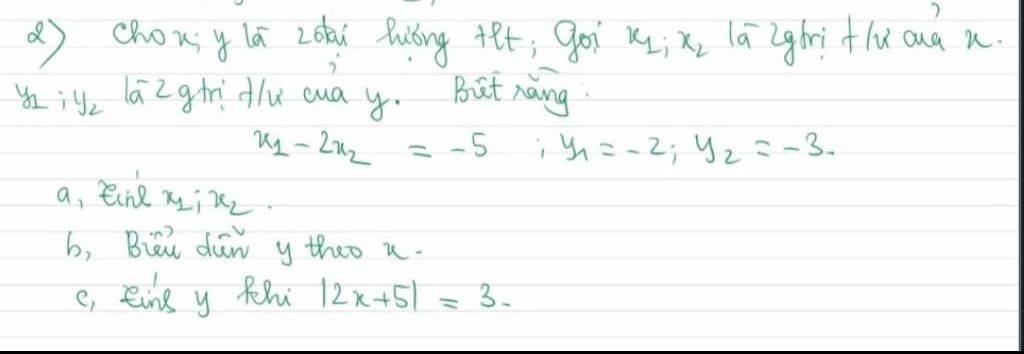 2) Cho x; y là 2 đại lượng tlt; Gọi x₁; x₂ là 2 gtrị t/ư của x.
y₁; y₂ là 2 gtrị t/ư của y. Biết rằng:
x₁ - 2x₂ = -5 ; y₁ = -2; y₂ = -3.
a, Tính x₁; x₂.
b, Biểu diễn y theo x.
c, Tính y khi |2x+5| = 3.